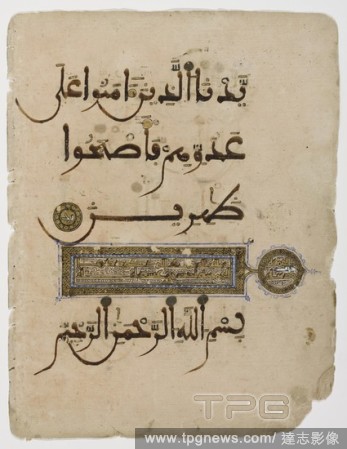 يَّدْنَا الَّذِينَ ءَامَنُوا عَلَى
عَدُوِّهِمْ فَأَصْبَحُوا
ظَهِرِينَ
بِسْمِ اللَّهِ الرَّحْمَنِ الرَّحِيمِ
TPG
www.tpgnews.com / 達志影像